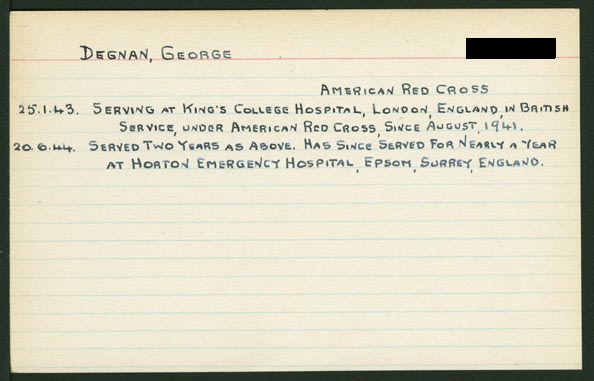 DEGNAN, GEORGE
AMERICAN RED CROSS
25.1.43. SERVING AT KING'S COLLEGE HOSPITAL, LONDON, ENGLAND, IN BRITISH
SERVICE, UNDER AMERICAN RED CROSS, SINCE AUGUST, 1941.
20.6.44. SERVED TWO YEARS AS ABOVE. HAS SINCE SERVED FOR NEARLY A YEAR
AT HORTON EMERGENCY HOSPITAL, EPSOM, SURREY, ENGLAND.